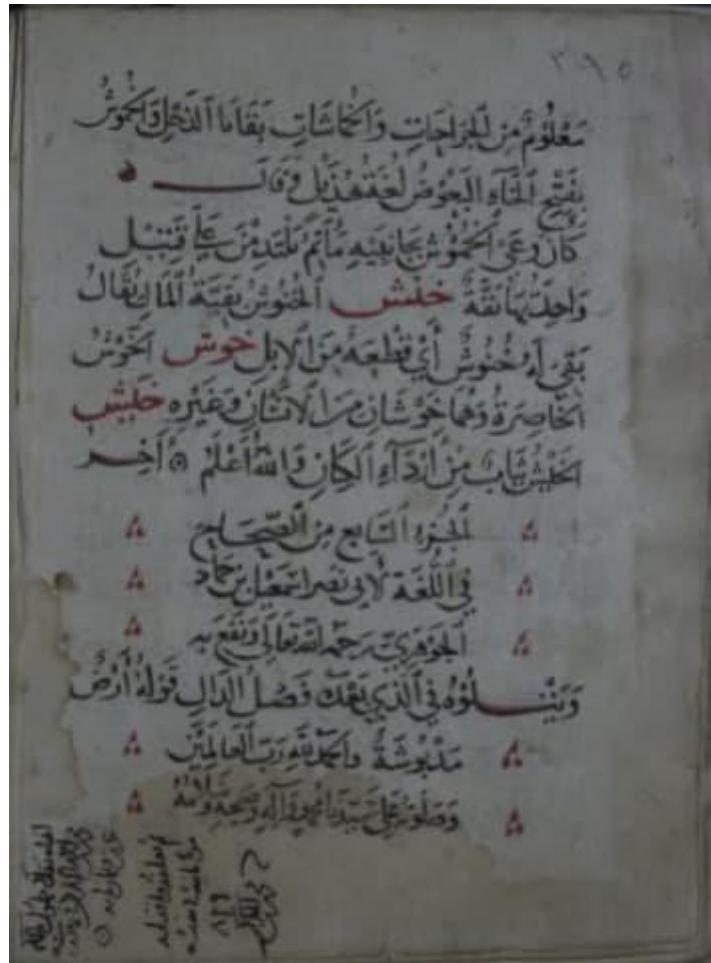 ٣٩٥
مَعْلُومٌ مِنَ الجِرَاحَاتِ وَالخُمَاشَاتِ بَقَايَا الذَّحْلِ وَالخَمُوشُ
بِفَتْحِ الخَاءِ البَعُوضُ لُغَةُ هُذَيْلٍ وَقَالَ
كَأَنَّ وَغَى الخَمُوشِ بِجَانِبَيْهِ مَأْتَمٌ يَلْتَدِمْنَ عَلَى قَتِيلِ
وَاحِدَتُهَا بَقَّةٌ خنش الخُنْشُوشُ بَقِيَّةُ المَالِ يُقَالُ
بَقِيَ لَهُ خُنْشُوشٌ أَيْ قِطْعَةٌ مِنَ الإِبِلِ خوش الخَوْشُ
الخَاصِرَةُ وَهُمَا خَوْشَانِ مِنَ الإِنْسَانِ وَغَيْرِهِ خيش
الخَيْشُ ثِيَابٌ مِنْ أَرْدَاءِ الكَتَّانِ وَاللهُ أَعْلَمُ آخِر
الجُزْءِ السَّابِعِ مِنَ الصِّحَاحِ
فِي اللُّغَةِ لِأَبِي نَصْرٍ اسْمَعِيلَ بْنِ حَمَّاد
الجَوْهَرِيِّ رَحِمَهُ اللهُ تَعَالَى وَنَفَعَ بِهِ
وَيَتْلُوهُ فِي الَّذِي بَعْدَهُ فَصْلُ الدَّالِ قَوْلُهُ أَرْضٌ
مَدْبُوشَةٌ وَالحَمْدُ لِلَّهِ رَبِّ العَالَمِينَ
وَصَلَوَتُهُ عَلَى سَيِّدِنَا مُحَمَّدٍ وَآلِهِ وَصَحْبِهِ وَسَلَامُهُ